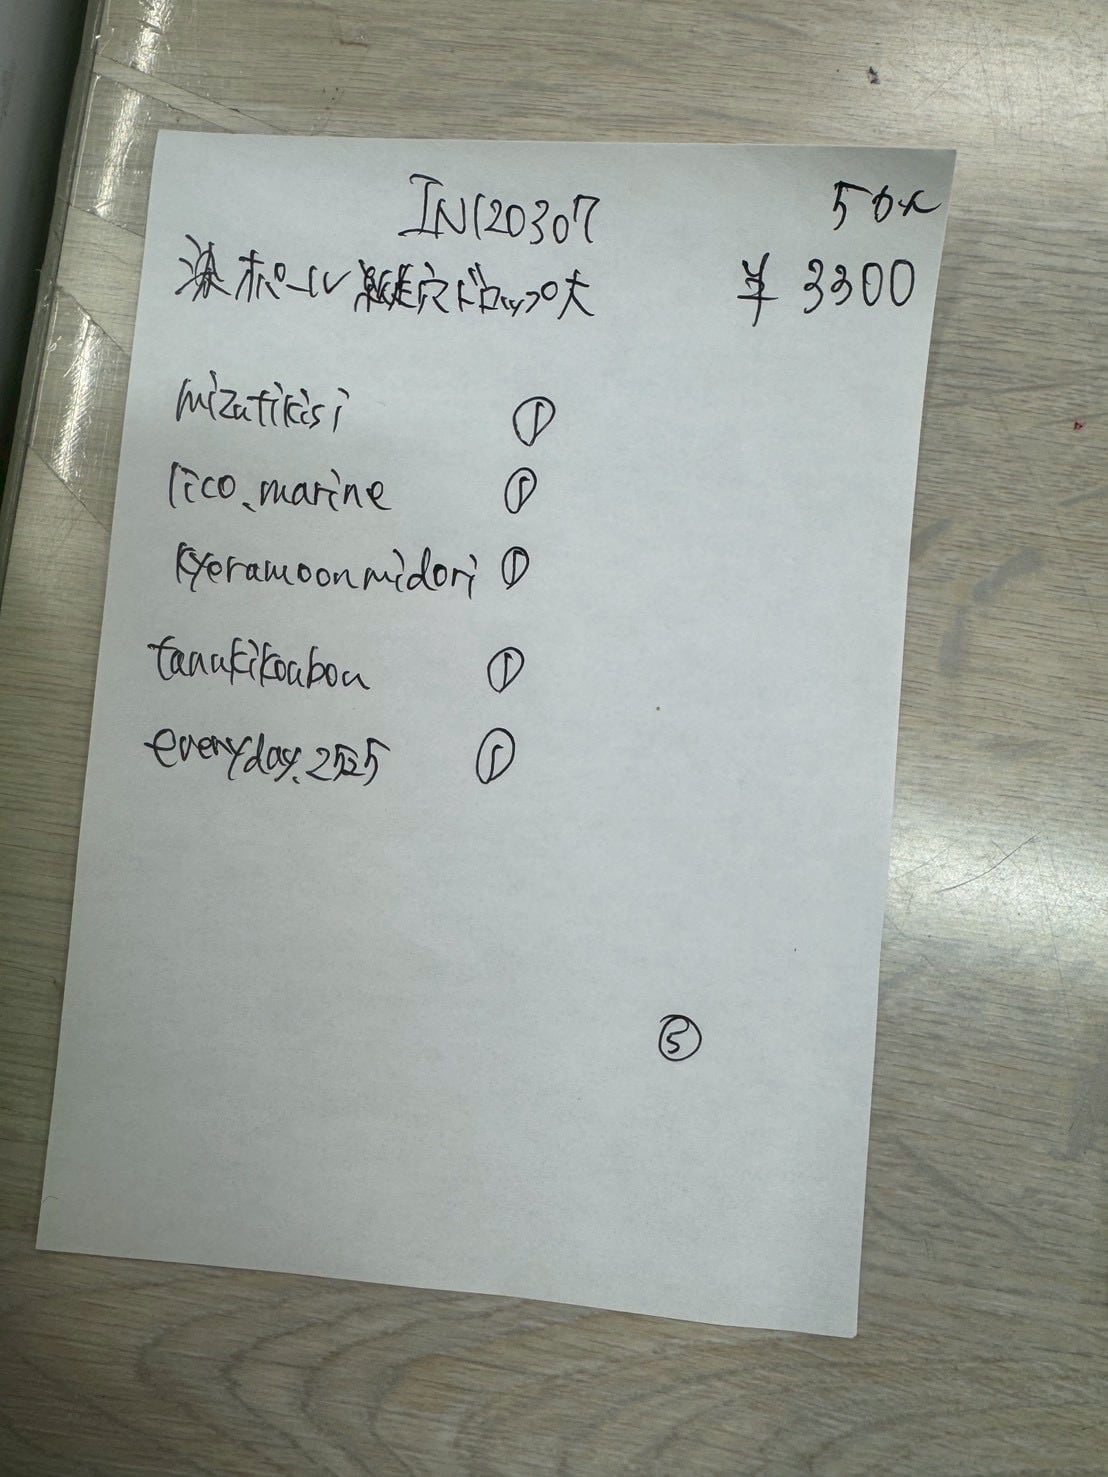 IN120307 50%
染オパール縦穴ドロップ大 ¥3300
mizutikisi ①
lico.marine ①
kyeramoonmidori ①
tanukikoubou ①
everyday.2525 ①
⑤